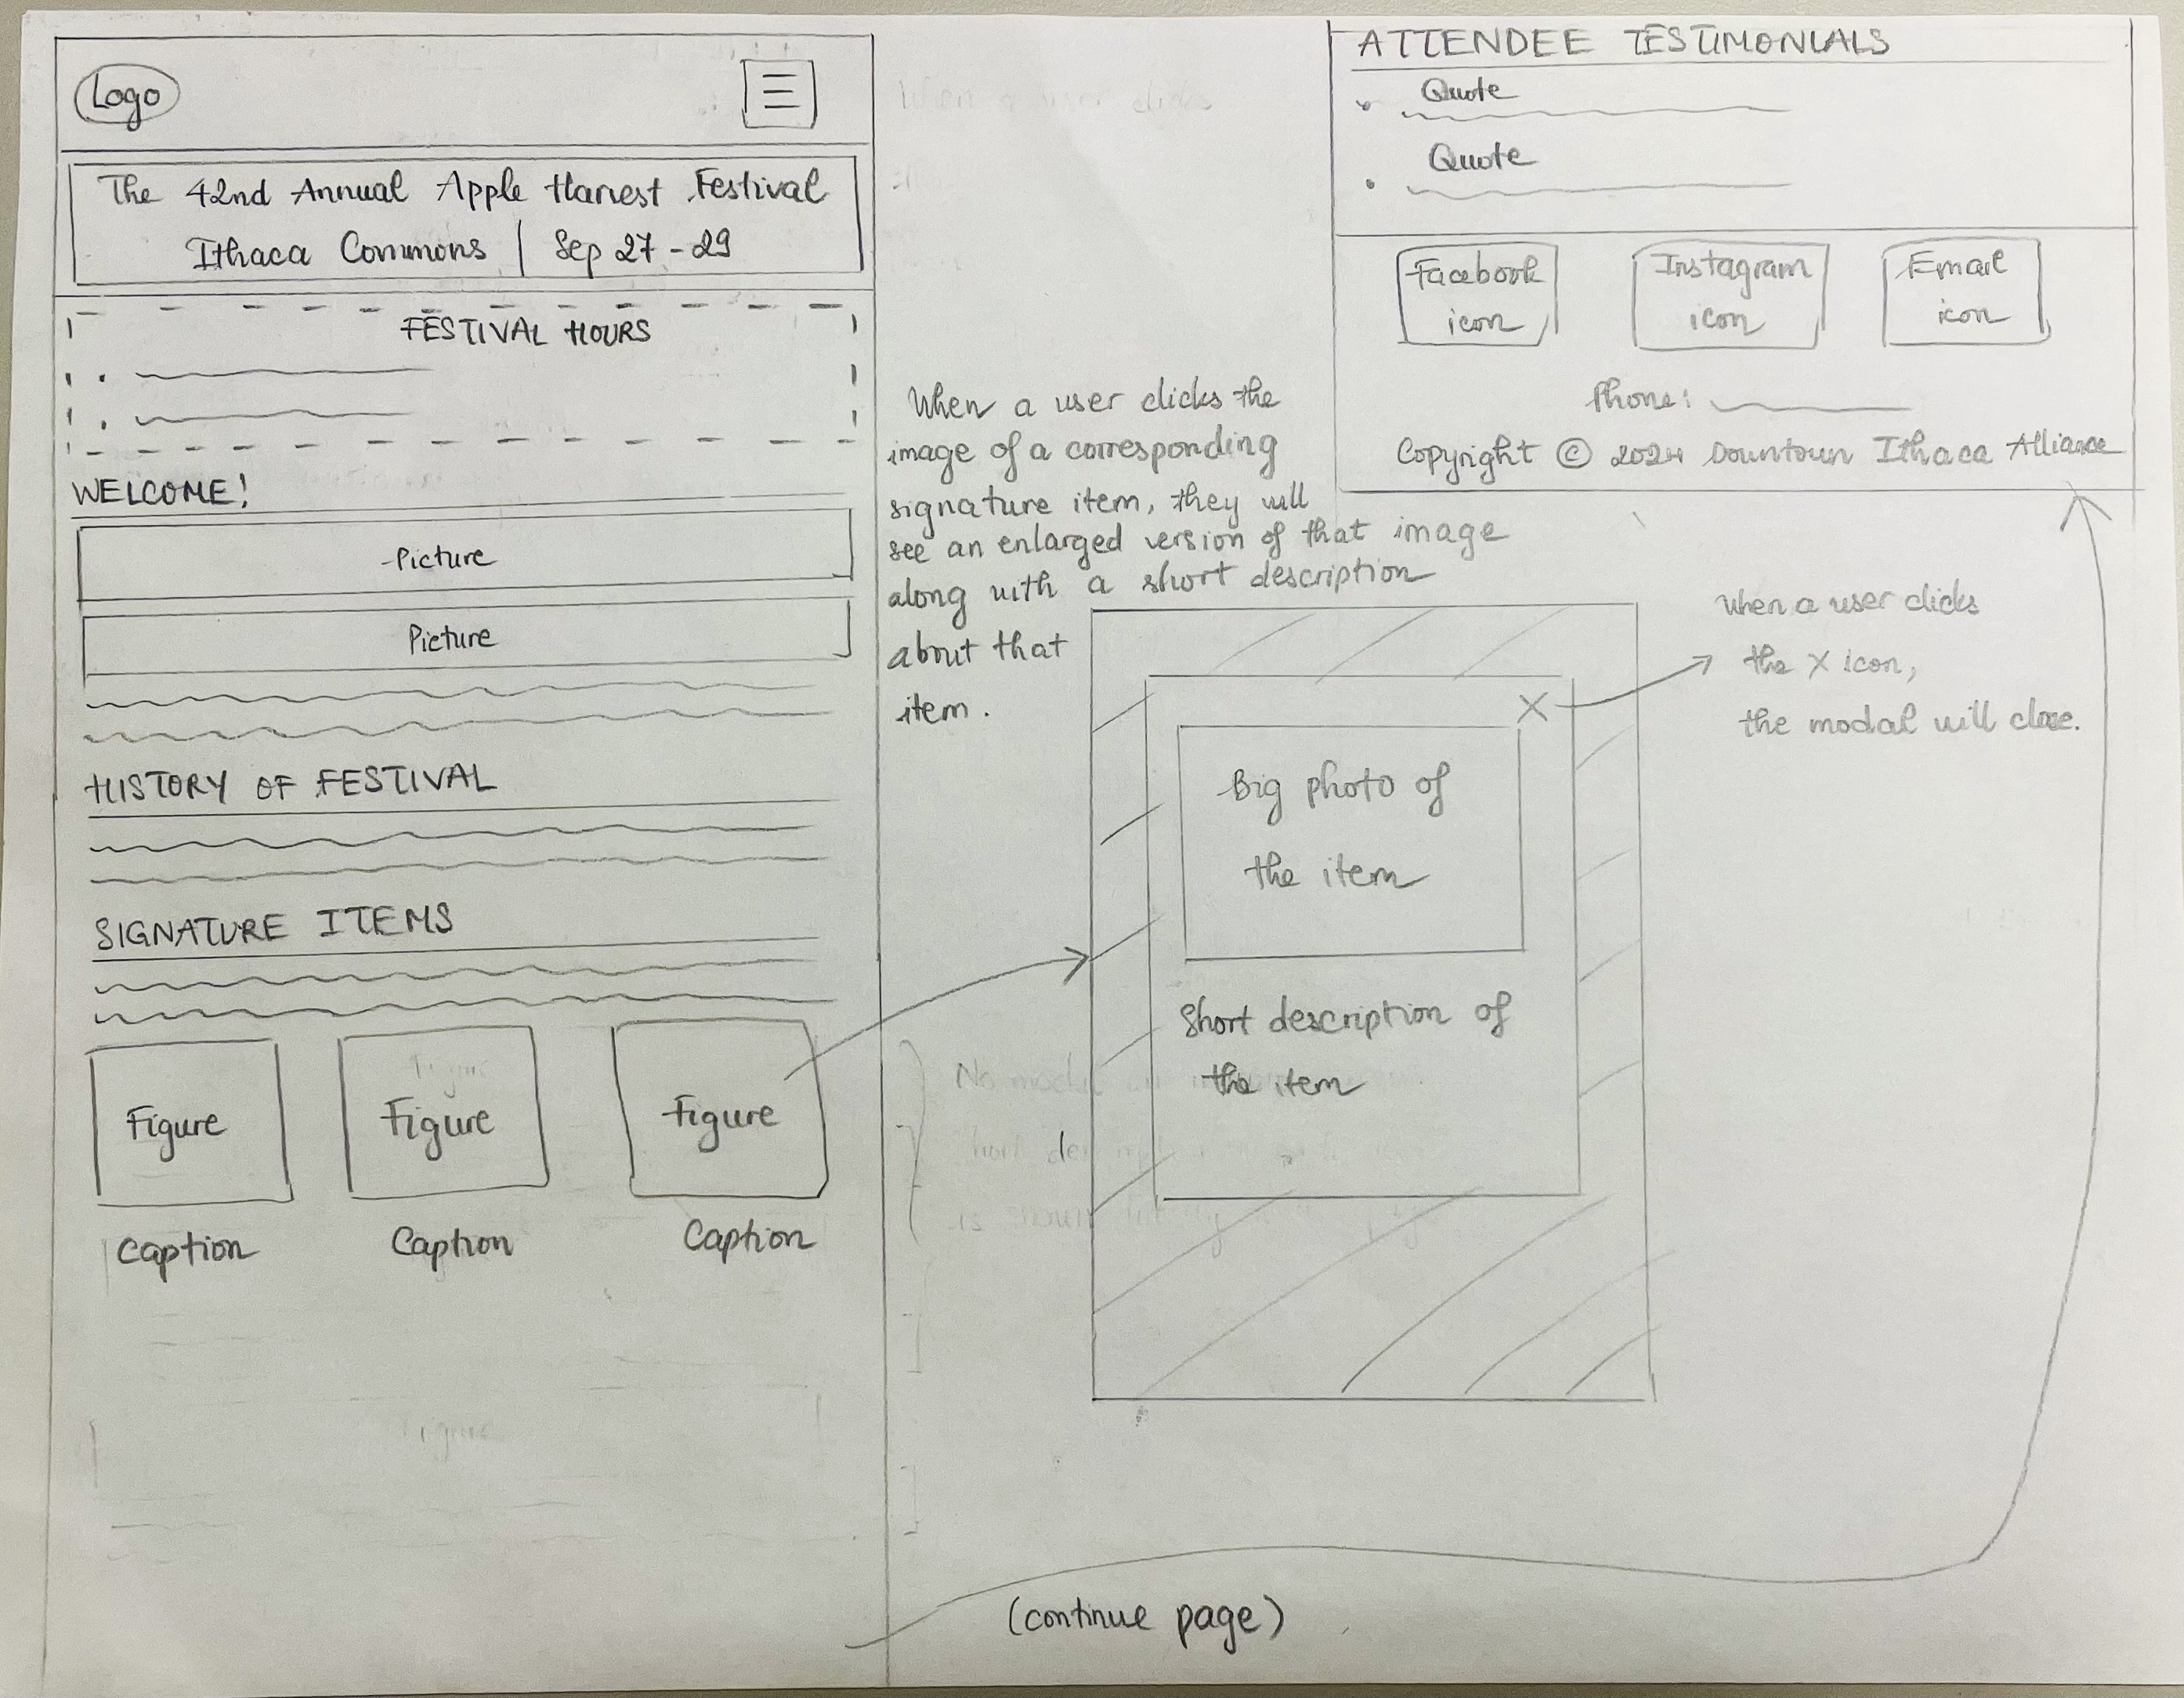 Logo
The 42nd Annual Apple Harvest Festival
Ithaca Commons | Sep 27 - 29
FESTIVAL HOURS
WELCOME!
Picture
Picture
HISTORY OF FESTIVAL
SIGNATURE ITEMS
Figure
Figure
Figure
Caption
Caption
Caption
When a user clicks the
image of a corresponding
signature item, they will
see an enlarged version of that image
along with a short description
about that
item.
X
Big photo of
the item
Short description of
the item
When a user clicks
the X icon,
the modal will close.
(continue page)
ATTENDEE TESTIMONIALS
Quote
Quote
Facebook
icon
Instagram
icon
Email
icon
Phone:
Copyright © 2024 Downtown Ithaca Alliance